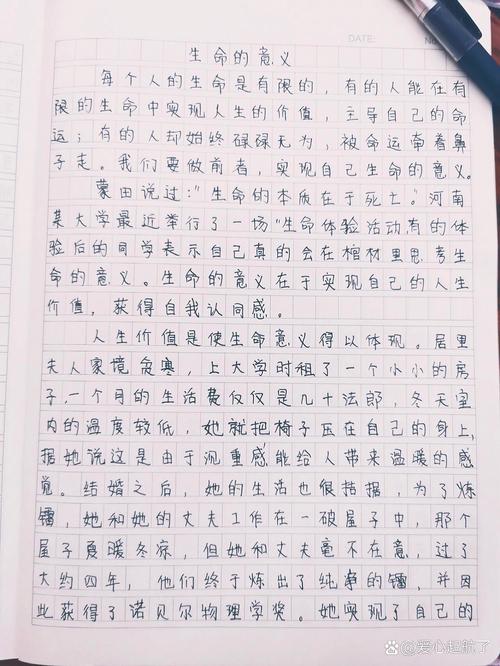 DATE:
生命的意义
每个人的生命是有限的，有的人能在有
限的生命中实现人生的价值，主导自己的命
运；有的人却始终碌碌无为，被命运牵着鼻
子走。我们要做前者，实现自己生命的意义。
蒙田说过："生命的本质在于死亡。"河南
某大学最近举行了一场"生命体验活动有的体
验后的同学表示自己真的会在棺材里思考生
命的意义。生命的意义在于实现自己的人生
价值，获得自我认同感。
人生价值是使生命意义得以体现。居里
夫人家境贫寒，上大学时租了一个小小的房
子，一个月的生活费仅仅是几十法郎，冬天室
内的温度较低，她就把椅子压在自己的身上，
据她说这是由于沉重感能给人带来温暖的感
觉。结婚之后，她的生活也很拮据，为了炼
镭，她和她的丈夫工作在一破屋子中，那个
屋子夏暖冬凉，但她和丈夫毫不在意，过了
大约四年，他们终于炼出了纯净的镭，并因
此获得了诺贝尔物理学奖。她实现了自己的
爱心起航了